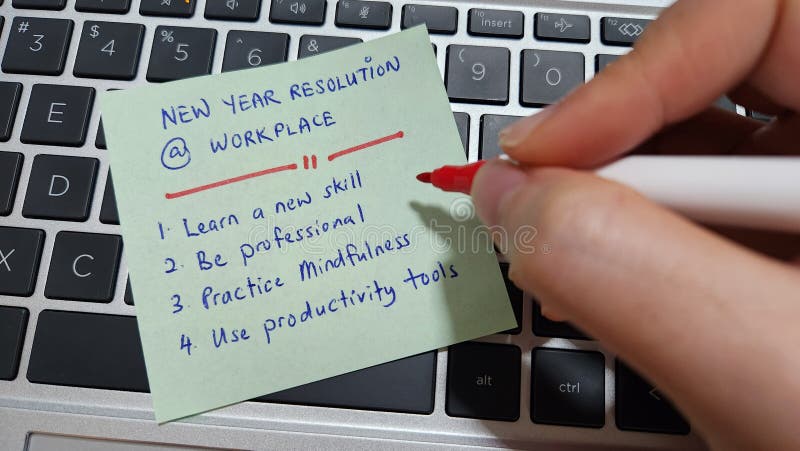 insert
# 3
$ 4
% 5
6
( 9
) 0
E
D
X
C
alt
ctrl
NEW YEAR RESOLUTION
@ WORKPLACE
1. Learn a new skill
2. Be professional
3. Practice Mindfulness
4. Use productivity tools
dreamstime